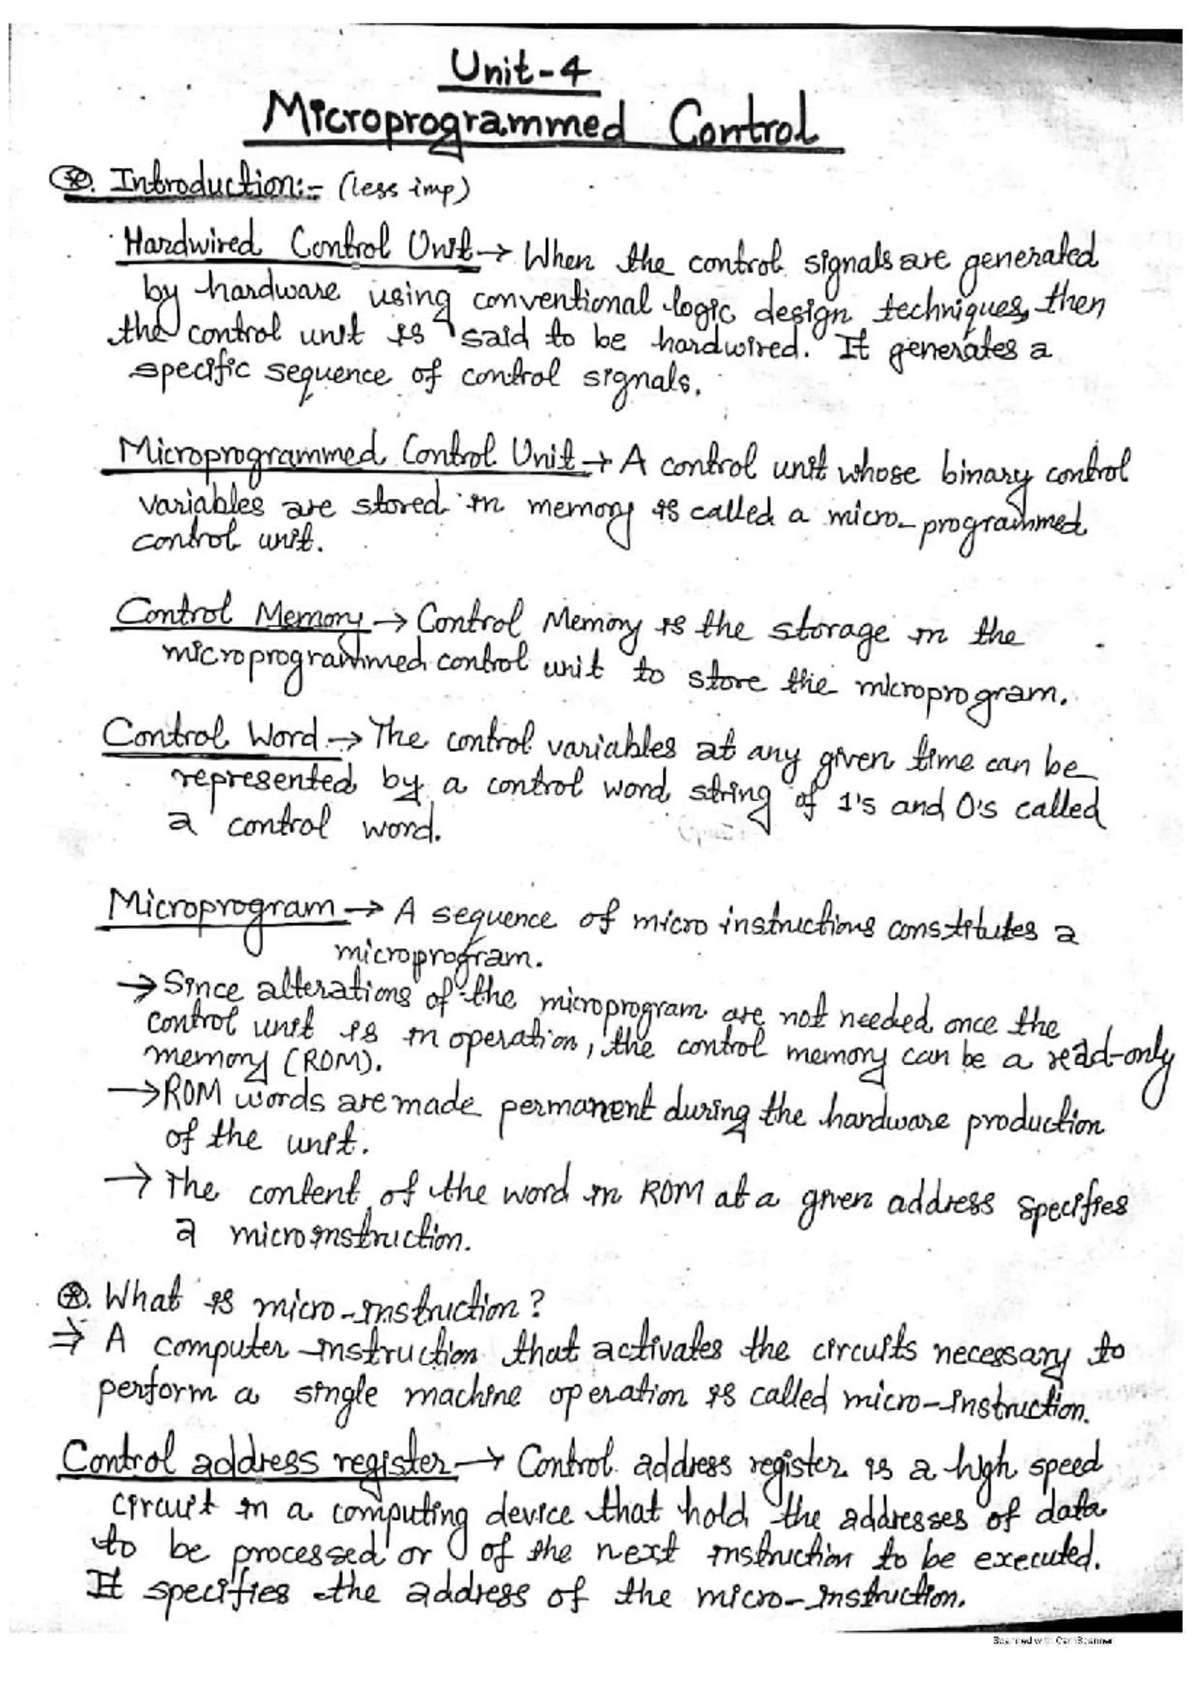 Unit-4
Microprogrammed Control
⊛. Introduction:- (less imp)
Hardwired Control Unit → When the control signals are generated
by hardware using conventional logic design techniques, then
the control unit is said to be hardwired. It generates a
specific sequence of control signals.
Microprogrammed Control Unit → A control unit whose binary control
variables are stored in memory is called a micro-programmed
control unit.
Control Memory → Control Memory is the storage in the
microprogrammed control unit to store the microprogram.
Control Word → The control variables at any given time can be
represented by a control word string of 1's and 0's called
a control word.
Microprogram → A sequence of micro instructions constitutes a
microprogram.
→ Since alterations of the microprogram are not needed once the
control unit is in operation, the control memory can be a read-only
memory (ROM).
→ ROM words are made permanent during the hardware production
of the unit.
→ The content of the word in ROM at a given address specifies
a microinstruction.
⊛. What is micro-instruction?
⇒ A computer instruction that activates the circuits necessary to
perform a single machine operation is called micro-instruction.
Control address register → Control address register is a high speed
circuit in a computing device that hold the addresses of data
to be processed or of the next instruction to be executed.
It specifies the address of the micro-instruction.
Scanned with CamScanner